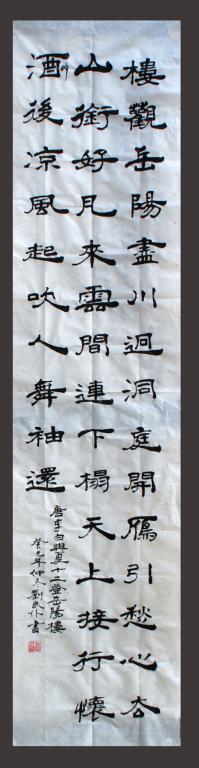 樓觀岳陽盡川迥洞庭開鴈引愁心去
山銜好月來雲間連下榻天上接行懷
酒後凉風起吹人舞袖還
唐李白與夏十二登岳陽樓
癸巳年仲冬劉書